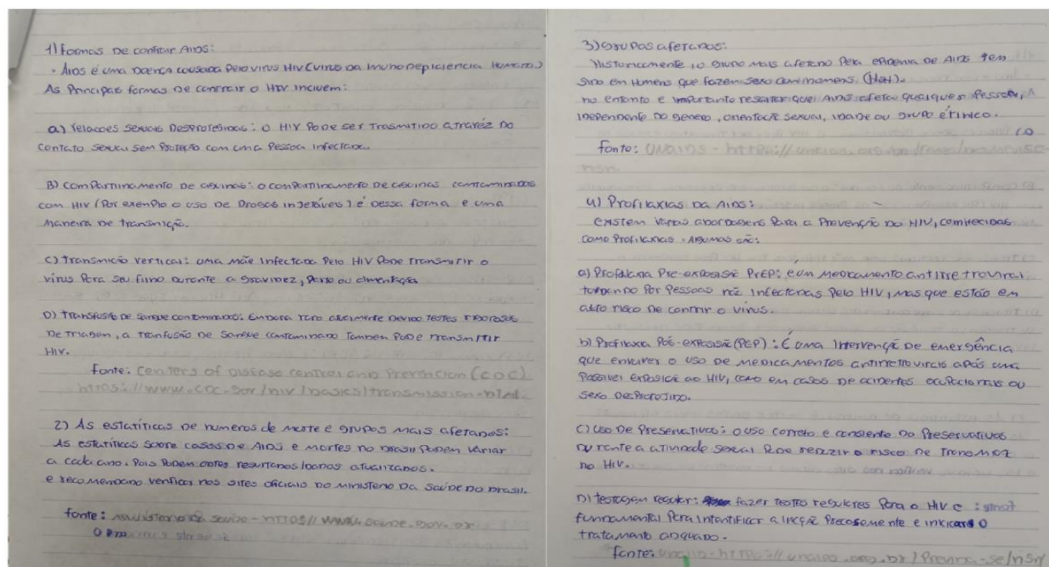 1) Formas De contrair Aids:
• Aids é uma Doença causada pelo vírus HIV (vírus da Imuno Depiciencia Humana)
As Principais formas De contrair o HIV incluem:
a) relações sexuais Desprotegidas: o HIV Pode ser Trasmitido atravéz do
contato sexual sem Proteção com uma Pessoa infectada.
B) compartinhamento De agulhas: o compartinhamento De agulhas contaminadas
com HIV (Por exemplo o uso De Drogas injetáveis) é dessa forma e uma
maneira De transmição.
c) transmição vertical: uma mãe infectada Pelo HIV Pode transmitir o
vírus Para seu filho Durante a gravidez, Parto ou
D) transfusão De sangue contaminado: Embora raro Devido testes
De triagem, a tranfusão De Sangue contaminado Também Pode transmitir
HIV.
fonte: centers of Disease control and Prevencion (CDC)
https://www.cdc.gov/hiv/basics/transmission.html
2) As estatíticas De numeros de morte e grupos mais afetados:
As estatíticas sobre casos De Aids e mortes no Brasil Podem variar
a cada ano. Pois Podem atualizados.
e recomendado verificar nos sites oficiais do ministerio Da Saúde Do Brasil.
fonte: ministerio da saude - https://www.saude.gov.br
3) Grupos afetados:
Historicamente, o Grupo mais afetado Pela epidemia De Aids tem
sido em Homens que fazem sexo com homens. (HSH).
no entanto e importante que Aids afeta qualquer Pessoa,
independente Do gênero, orientação sexual, idade ou grupo étinico.
fonte: UNAIDS - https://unaids.org.br
4) Profilaxias Da Aids:
existem várias abordagens Para a Prevenção Do HIV, comhecidas
como Profilaxias. Algumas são:
a) Profilaxia Pre-exposição PrEP: é um medicamento antirretroviral
Por Pessoas não infectadas Pelo HIV, mas que estão em
alto risco De contrair o vírus.
b) Profilaxia Pós-exposição (PEP): É uma Intervenção De emergência
que envolve o uso De medicamentos antirretrovirais após uma
Possível exposição ao HIV, como em casos De acidentes ou
sexo Desprotegido.
c) uso De Preservativos: o uso correto e Do Preservativos
Durante a atividade sexual Pode reduzir o risco De
Do HIV.
D) testagem regular: fazer testes regulares Para o HIV e
fundamental Para a Precosemente e o
tratamento adquado.
fonte: unaids - https://unaids.org.br